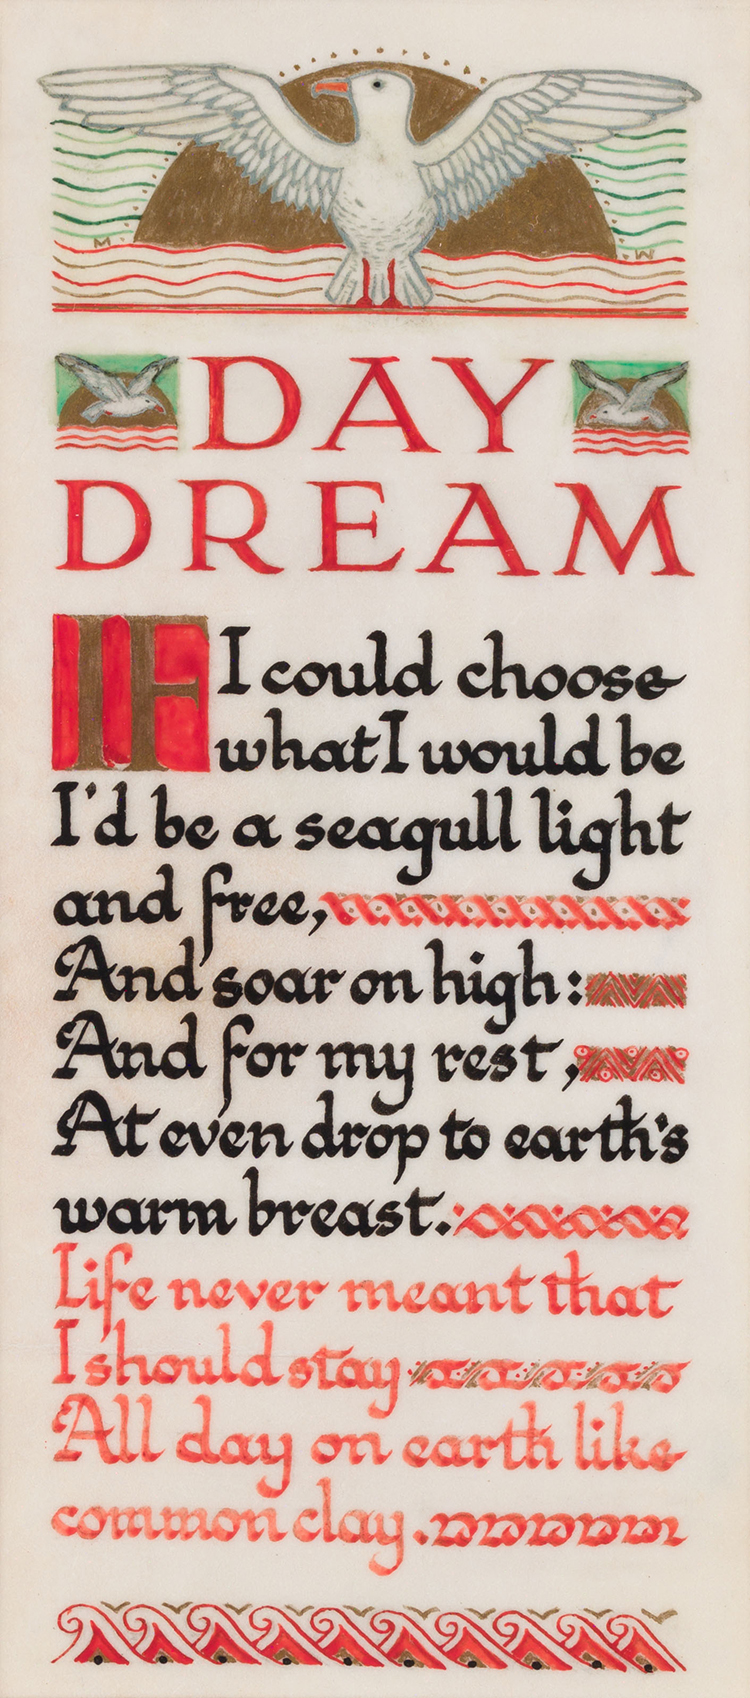 M. W
DAY
DREAM
IF I could choose
what I would be
I'd be a seagull light
and free,
And soar on high:
And for my rest,
At even drop to earth's
warm breast.
Life never meant that
I should stay
All day on earth like
common clay.